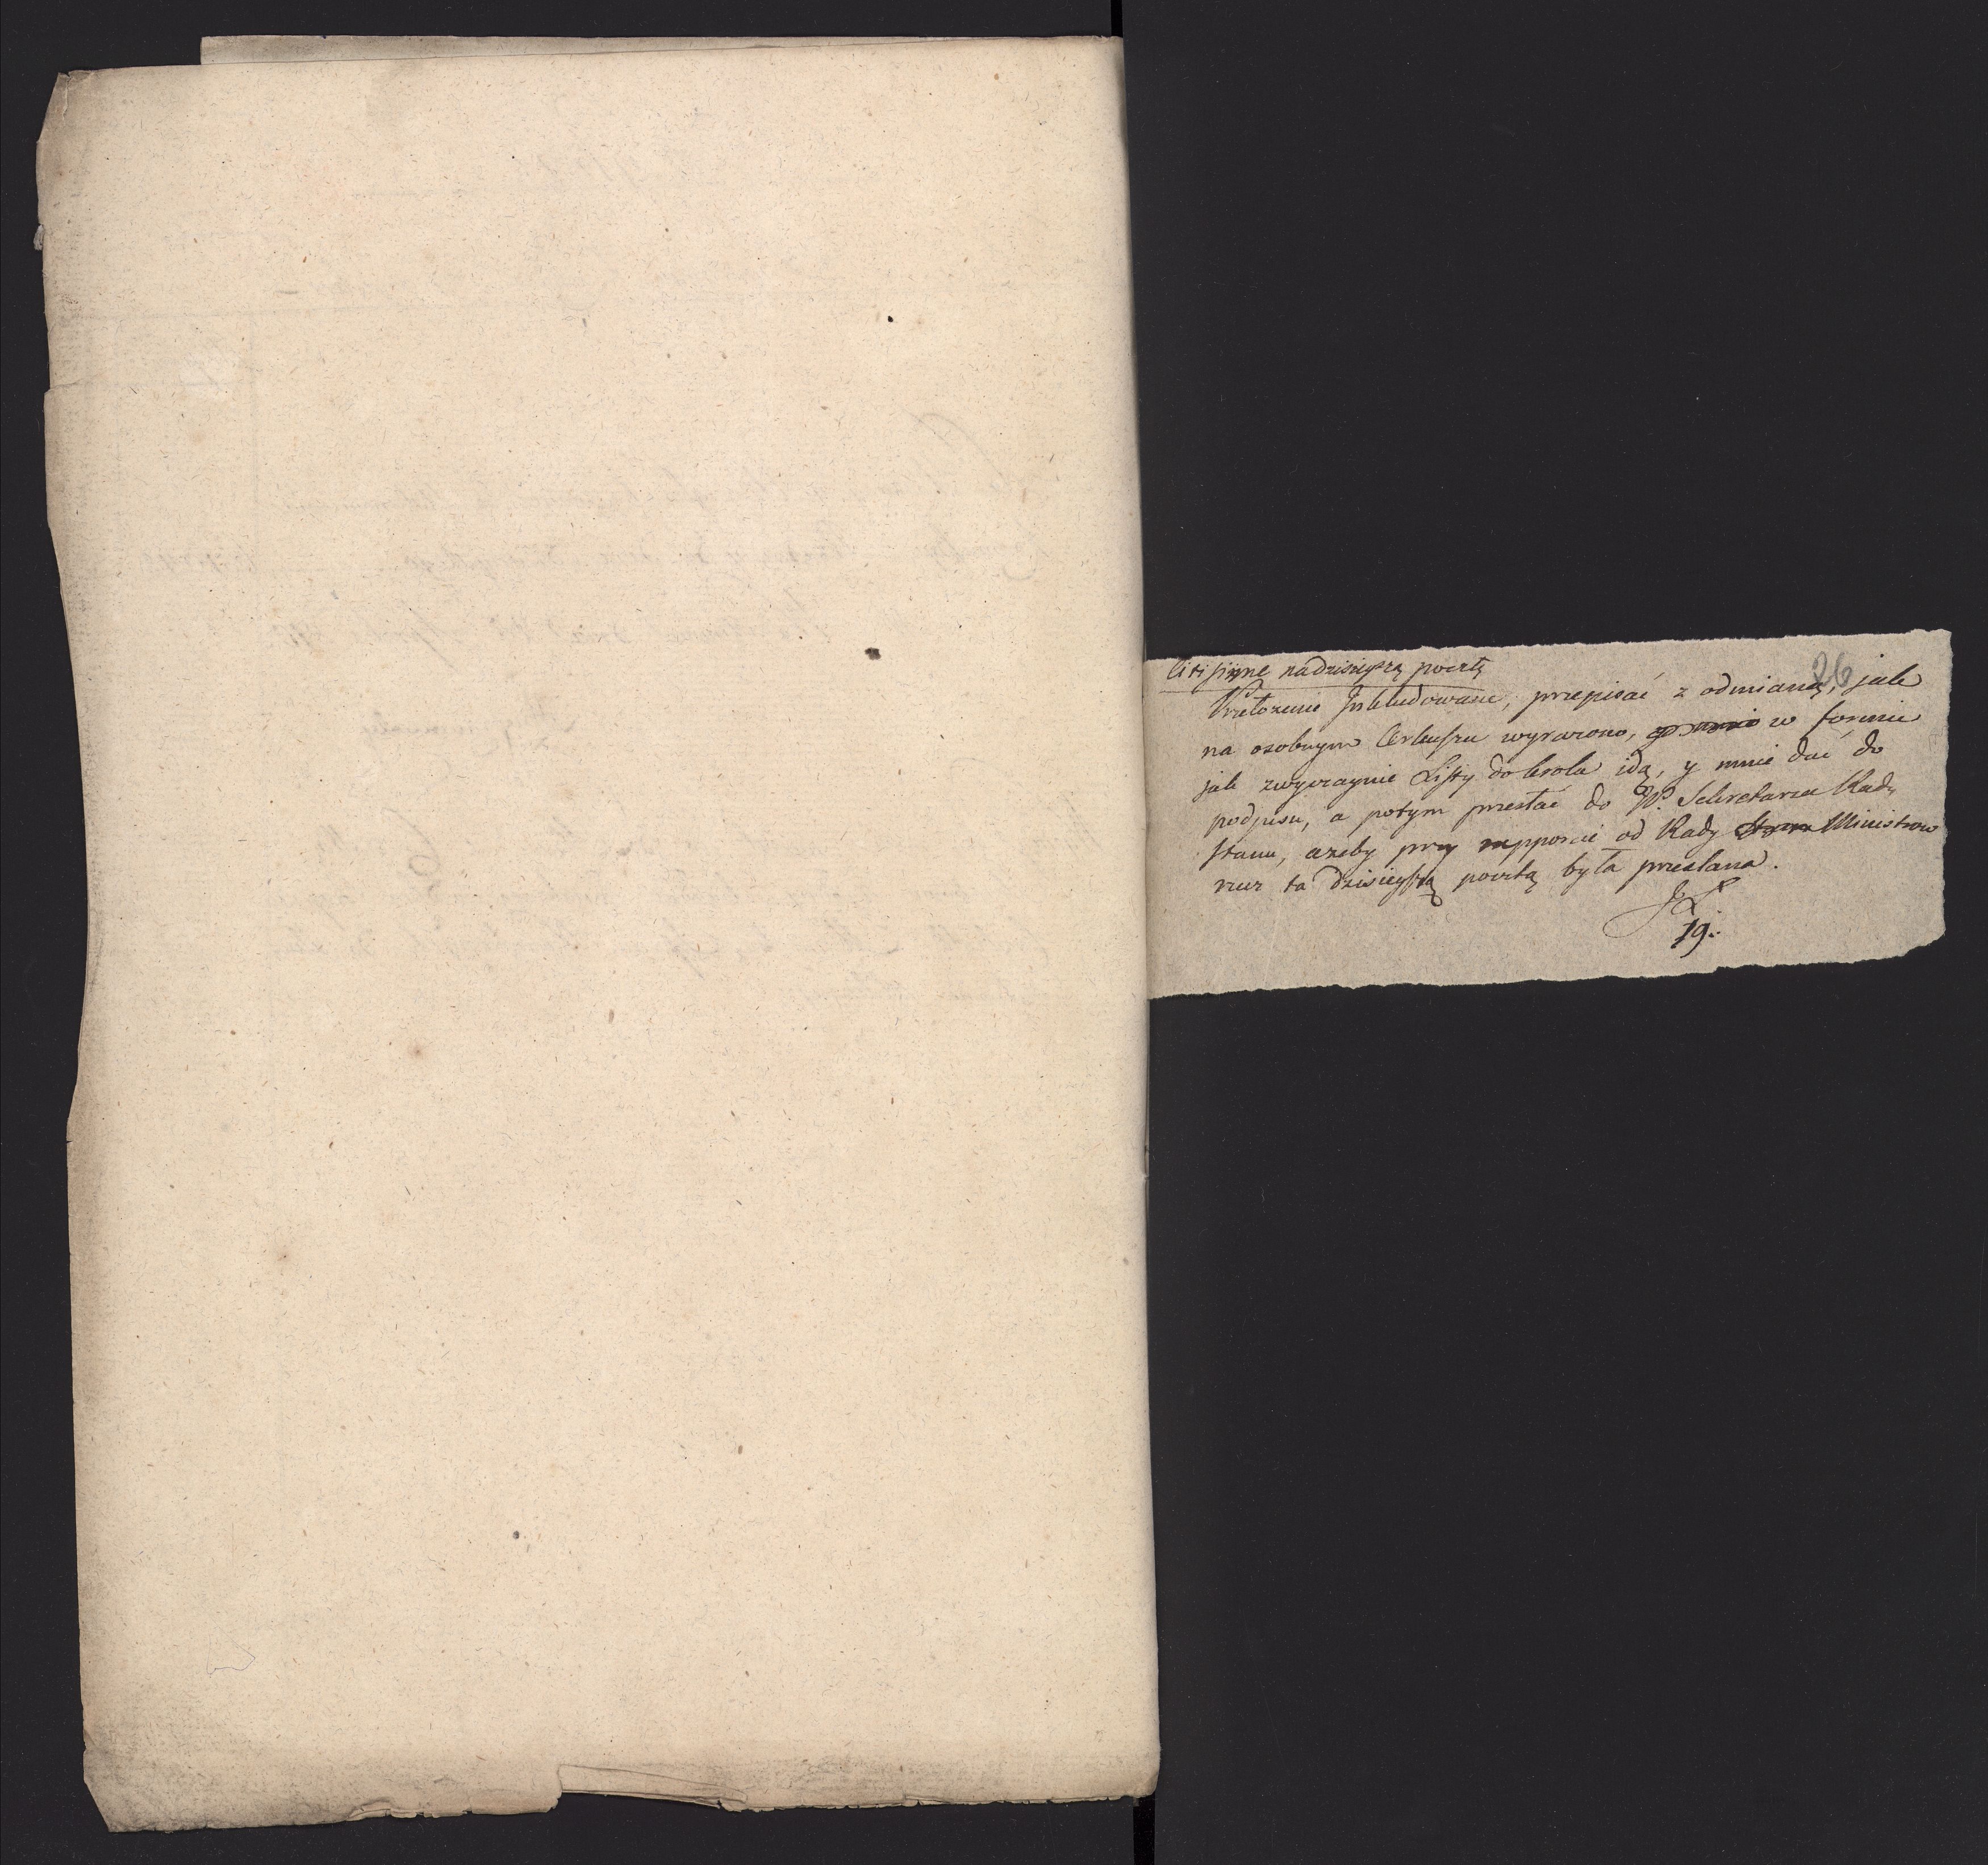 Citissime na dzisieyszą pocztę
26
Przełożenie Inkludowane, przepisać z odmianą, jak
na osobnym Arkuszu wyrażono, w formie
jak zwyczaynie Listy do Krola idą, y mnie dać do
podpisu, a potym przesłać do W. Sekretarza Rady
Stanu, azeby przy rapporcie od Rady Ministrow
ta dzisieyszą pocztą była przesłana.
19.